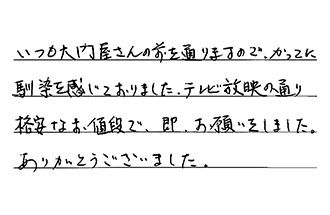 いつも大内屋さんの前を通りますので、かってに
馴染を感じておりました、テレビ放映の通り
格安なお値段で、即、お願いをしました。
ありがとうございました。